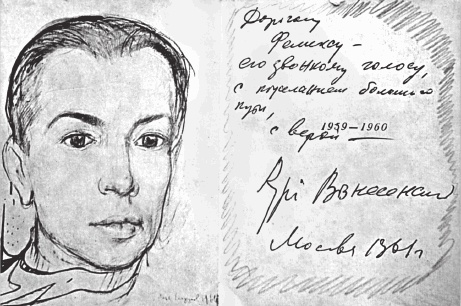 Дорогому
Феликсу –
его звонкому голосу,
с пожеланием большого
пути,
1959–1960
с верой
Вознесенский
Москва 1961 г